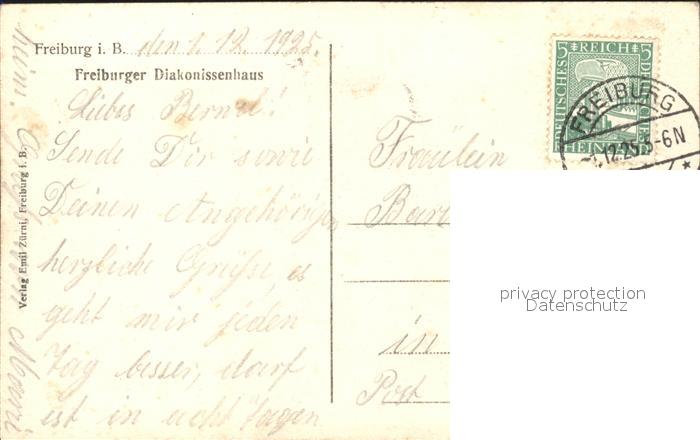 Freiburg i. B. den 1. 12. 1925.
Freiburger Diakonissenhaus
Liebes Bernel!
Sende Dir sowie
Deinen Angehörigen
herzliche Grüße, es
geht mir jeden
Tag besser, darf
ist in acht Tagen
Verlag Emil Zürni, Freiburg i. B.
Fräulein
Bar
in
Post
5 REICH 5
DEUTSCHES
RHEIN
FREIBURG
12.25.5-6N
privacy protection
Datenschutz